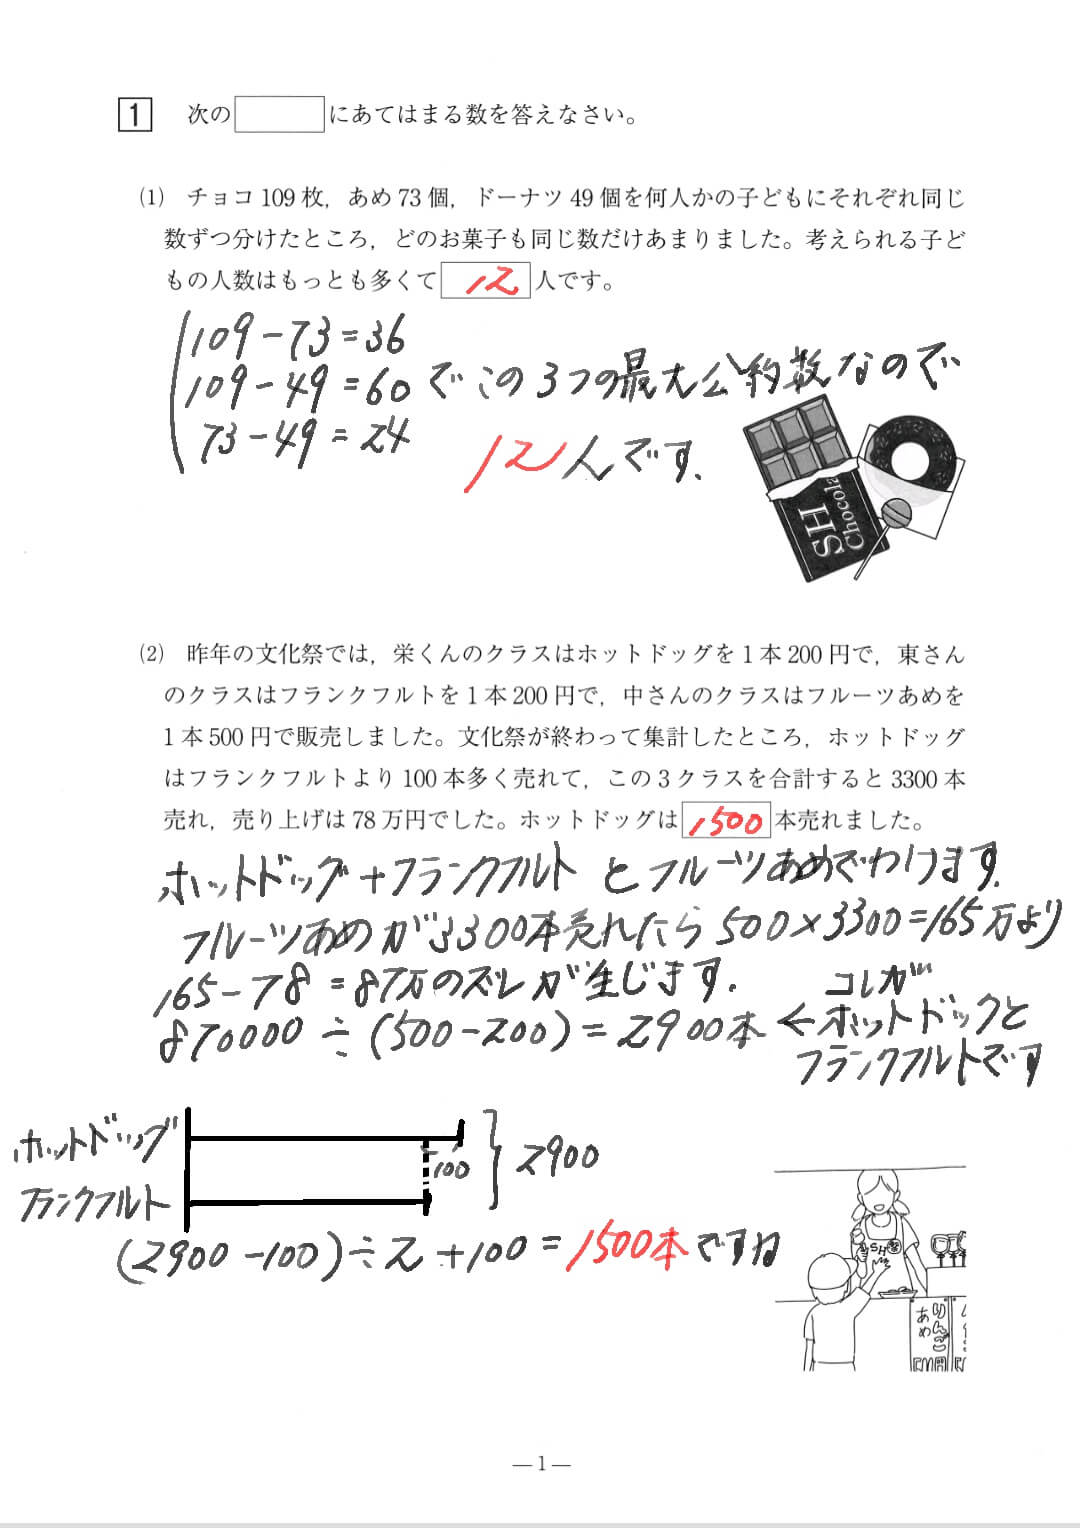 1 次の　　　にあてはまる数を答えなさい。
(1) チョコ109枚，あめ73個，ドーナツ49個を何人かの子どもにそれぞれ同じ
数ずつ分けたところ，どのお菓子も同じ数だけあまりました。考えられる子ど
もの人数はもっとも多くて 12 人です。
109－73＝36
109－49＝60 で この3つの最大公約数なので
73－49＝24
12人です.
SH
Chocola
(2) 昨年の文化祭では，栄くんのクラスはホットドッグを1本200円で，東さん
のクラスはフランクフルトを1本200円で，中さんのクラスはフルーツあめを
1本500円で販売しました。文化祭が終わって集計したところ，ホットドッグ
はフランクフルトより100本多く売れて，この3クラスを合計すると3300本
売れ，売り上げは78万円でした。ホットドッグは 1500 本売れました。
ホットドッグ＋フランクフルト とフルーツあめでわけます.
フルーツあめが3300本売れたら500×3300＝165万より
165－78＝87万のズレが生じます.
870000÷(500－200)＝2900本 ← コレがホットドックと
フランクフルトです
ホットドッグ
100
2900
フランクフルト
(2900－100)÷2＋100＝1500本ですね
SH
りんご
あめ
―1―